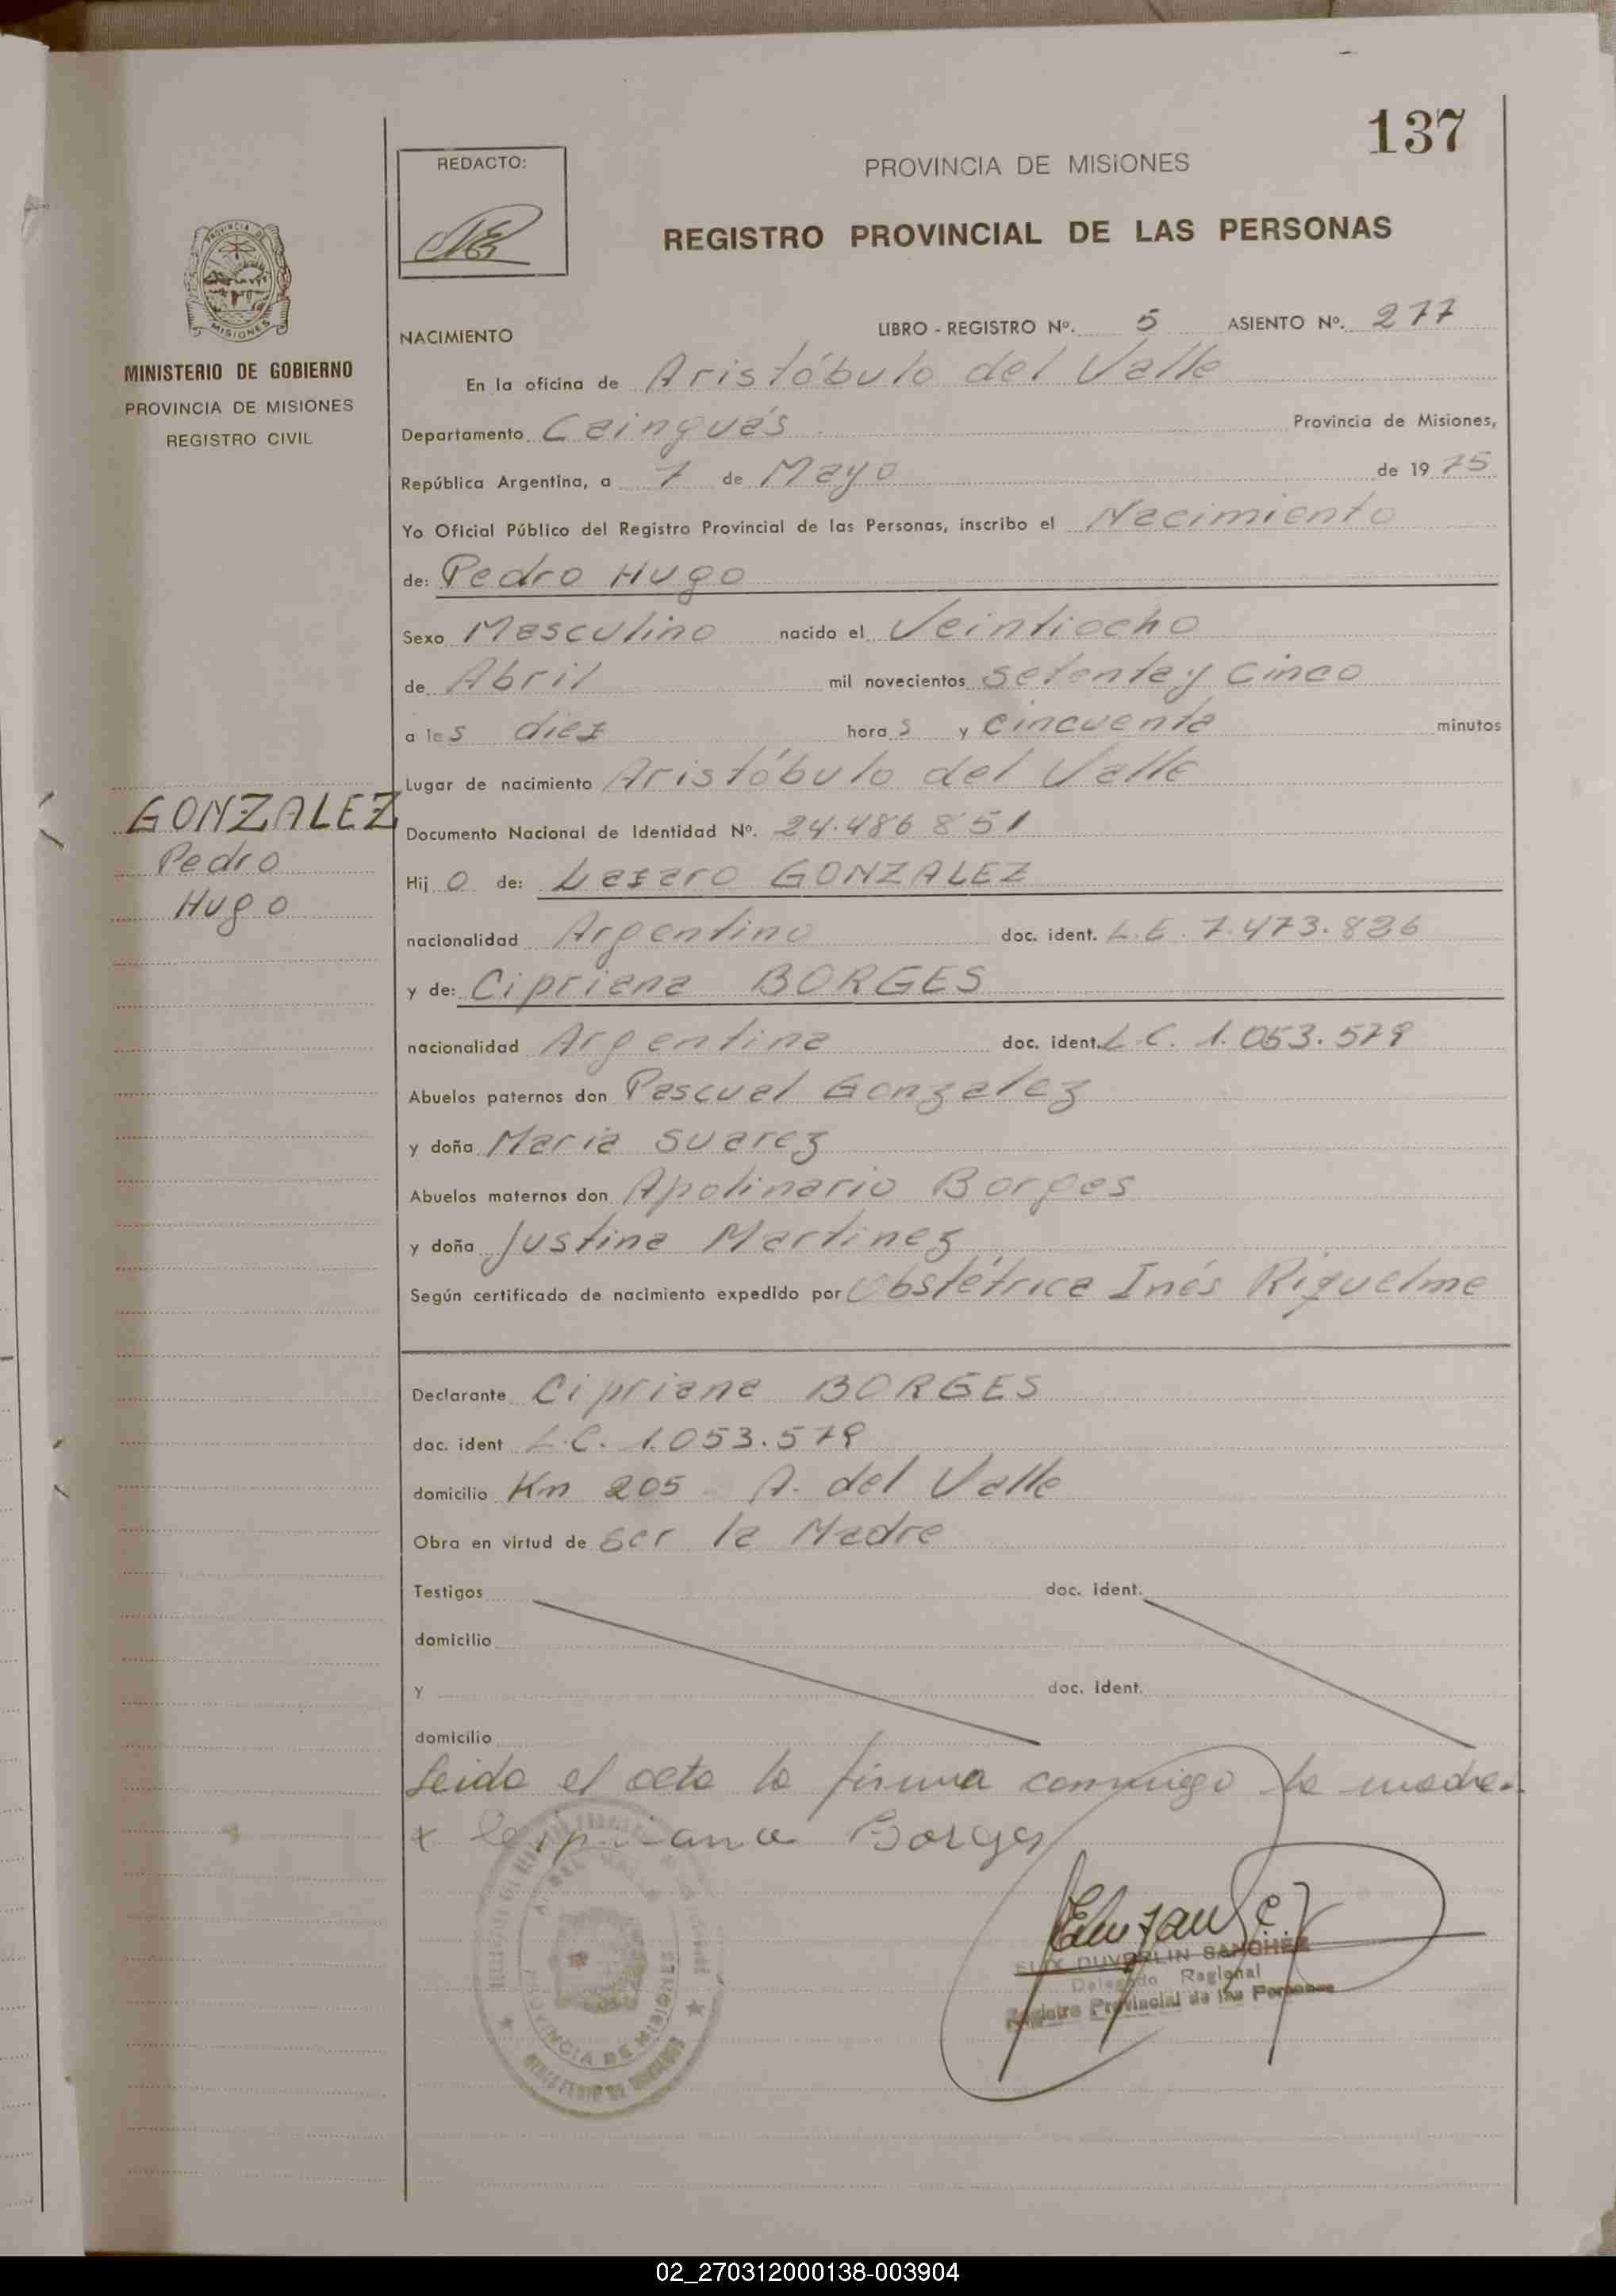 137
REDACTO:
PROVINCIA DE MISIONES
REGISTRO PROVINCIAL DE LAS PERSONAS
PROVINCIA DE
MISIONES
MINISTERIO DE GOBIERNO
PROVINCIA DE MISIONES
REGISTRO CIVIL
NACIMIENTO LIBRO - REGISTRO Nº. 5 ASIENTO Nº. 277
En la oficina de Aristóbulo del Valle
Departamento Cainguás Provincia de Misiones,
República Argentina, a 7 de Mayo de 1975
Yo Oficial Público del Registro Provincial de las Personas, inscribo el Nacimiento
de: Pedro Hugo
Sexo Masculino nacido el Veintiocho
de Abril mil novecientos setenta y Cinco
a las diez horas y cincuenta minutos
Lugar de nacimiento Aristóbulo del Valle
GONZALEZ
Pedro
Hugo
Documento Nacional de Identidad Nº. 24.486 851
Hijo de: Lazaro GONZALEZ
nacionalidad Argentino doc. ident. L.E. 7.473.826
y de: Cipriana BORGES
nacionalidad Argentina doc. ident. L.C. 1.053.579
Abuelos paternos don Pascual Gonzalez
y doña Maria Suarez
Abuelos maternos don Apolinario Borges
y doña Justina Martinez
Según certificado de nacimiento expedido por Obstétrica Inés Riquelme
Declarante Cipriana BORGES
doc. ident L.C. 1.053.579
domicilio Km 205 A. del Valle
Obra en virtud de ser la Madre
Testigos doc. ident.
domicilio
y doc. ident.
domicilio
Leida el acta la firma conmigo la madre.
x Cipriana Borges
PROVINCIA DE MISIONES
DUVERLIN SANCHEZ
Delegado Regional
Registro Provincial de las Personas
02_270312000138-003904